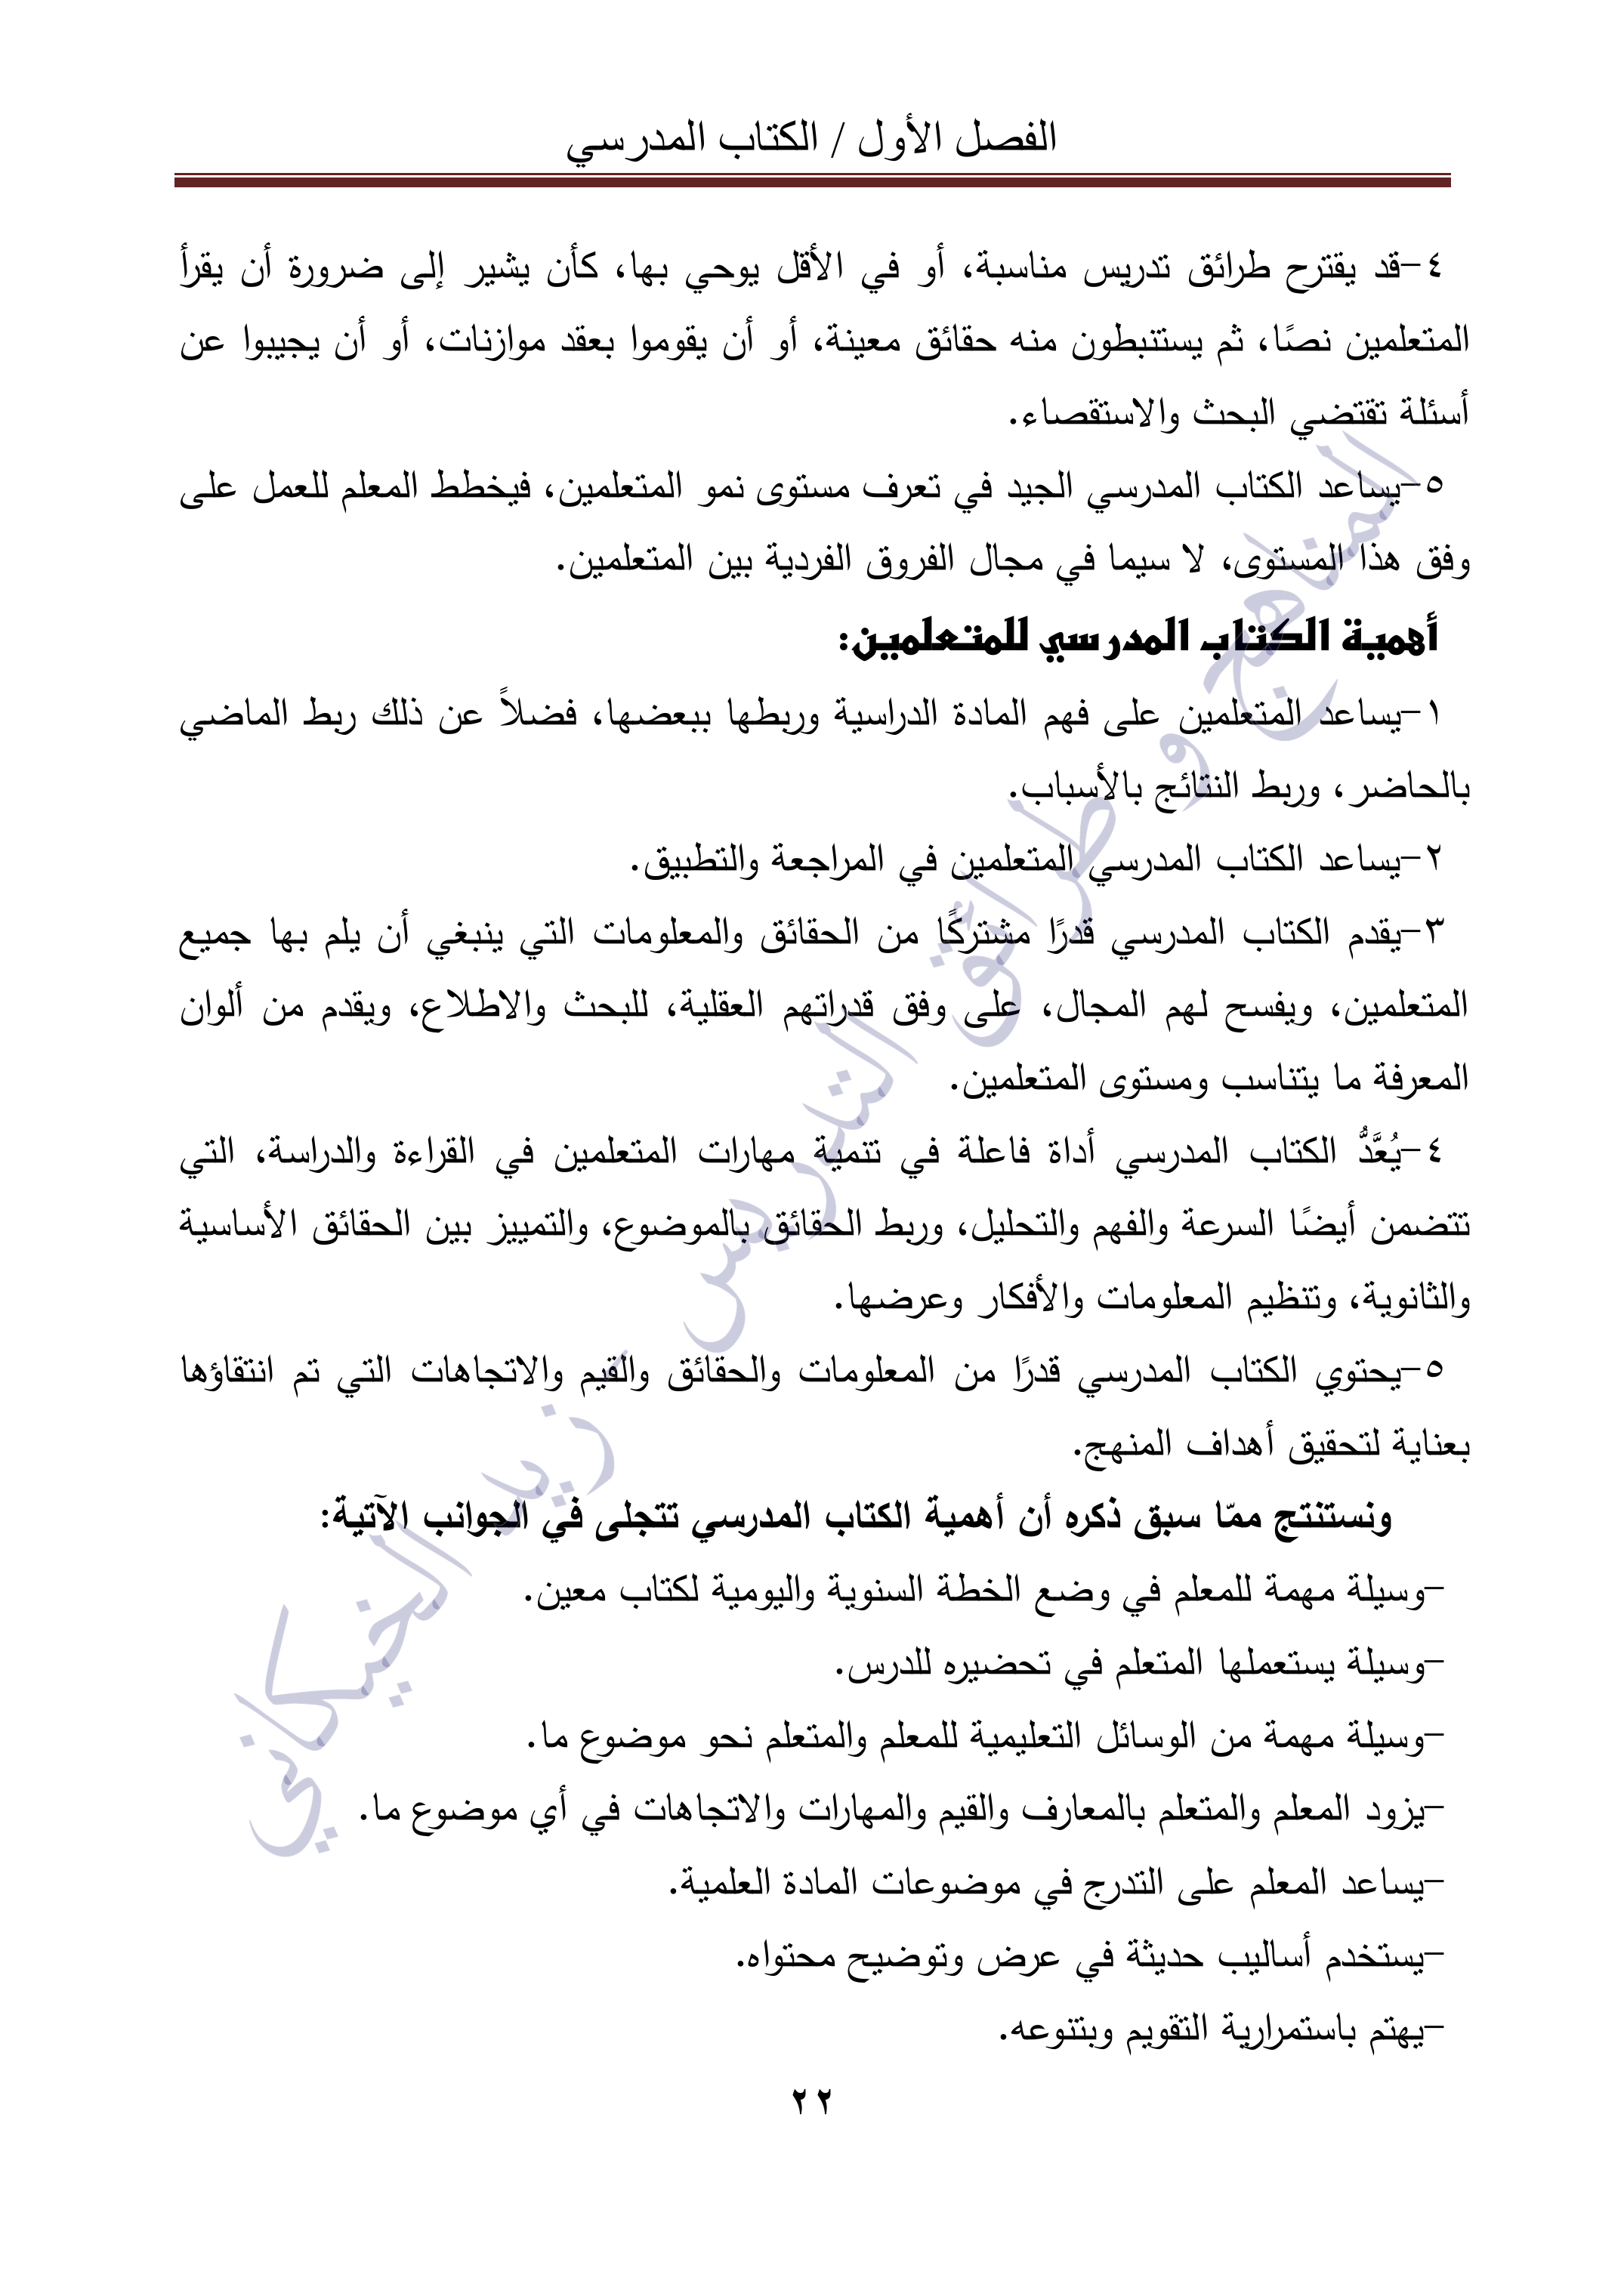 الفصل الأول / الكتاب المدرسي
٤-قد يقترح طرائق تدريس مناسبة، أو في الأقل يوحي بها، كأن يشير إلى ضرورة أن يقرأ
المتعلمين نصًا، ثم يستنبطون منه حقائق معينة، أو أن يقوموا بعقد موازنات، أو أن يجيبوا عن
أسئلة تقتضي البحث والاستقصاء.
٥-يساعد الكتاب المدرسي الجيد في تعرف مستوى نمو المتعلمين، فيخطط المعلم للعمل على
وفق هذا المستوى، لا سيما في مجال الفروق الفردية بين المتعلمين.
أهمية الكتاب المدرسي للمتعلمين:
١-يساعد المتعلمين على فهم المادة الدراسية وربطها ببعضها، فضلاً عن ذلك ربط الماضي
بالحاضر، وربط النتائج بالأسباب.
٢-يساعد الكتاب المدرسي المتعلمين في المراجعة والتطبيق.
٣-يقدم الكتاب المدرسي قدرًا مشتركًا من الحقائق والمعلومات التي ينبغي أن يلم بها جميع
المتعلمين، ويفسح لهم المجال، على وفق قدراتهم العقلية، للبحث والاطلاع، ويقدم من ألوان
المعرفة ما يتناسب ومستوى المتعلمين.
٤-يُعَّدُّ الكتاب المدرسي أداة فاعلة في تنمية مهارات المتعلمين في القراءة والدراسة، التي
تتضمن أيضًا السرعة والفهم والتحليل، وربط الحقائق بالموضوع، والتمييز بين الحقائق الأساسية
والثانوية، وتنظيم المعلومات والأفكار وعرضها.
٥-يحتوي الكتاب المدرسي قدرًا من المعلومات والحقائق والقيم والاتجاهات التي تم انتقاؤها
بعناية لتحقيق أهداف المنهج.
ونستنتج ممّا سبق ذكره أن أهمية الكتاب المدرسي تتجلى في الجوانب الآتية:
-وسيلة مهمة للمعلم في وضع الخطة السنوية واليومية لكتاب معين.
-وسيلة يستعملها المتعلم في تحضيره للدرس.
-وسيلة مهمة من الوسائل التعليمية للمعلم والمتعلم نحو موضوع ما.
-يزود المعلم والمتعلم بالمعارف والقيم والمهارات والاتجاهات في أي موضوع ما.
-يساعد المعلم على التدرج في موضوعات المادة العلمية.
-يستخدم أساليب حديثة في عرض وتوضيح محتواه.
-يهتم باستمرارية التقويم وبتنوعه.
٢٢
المناهج و طرائق التدريس - زيد الخيكاني